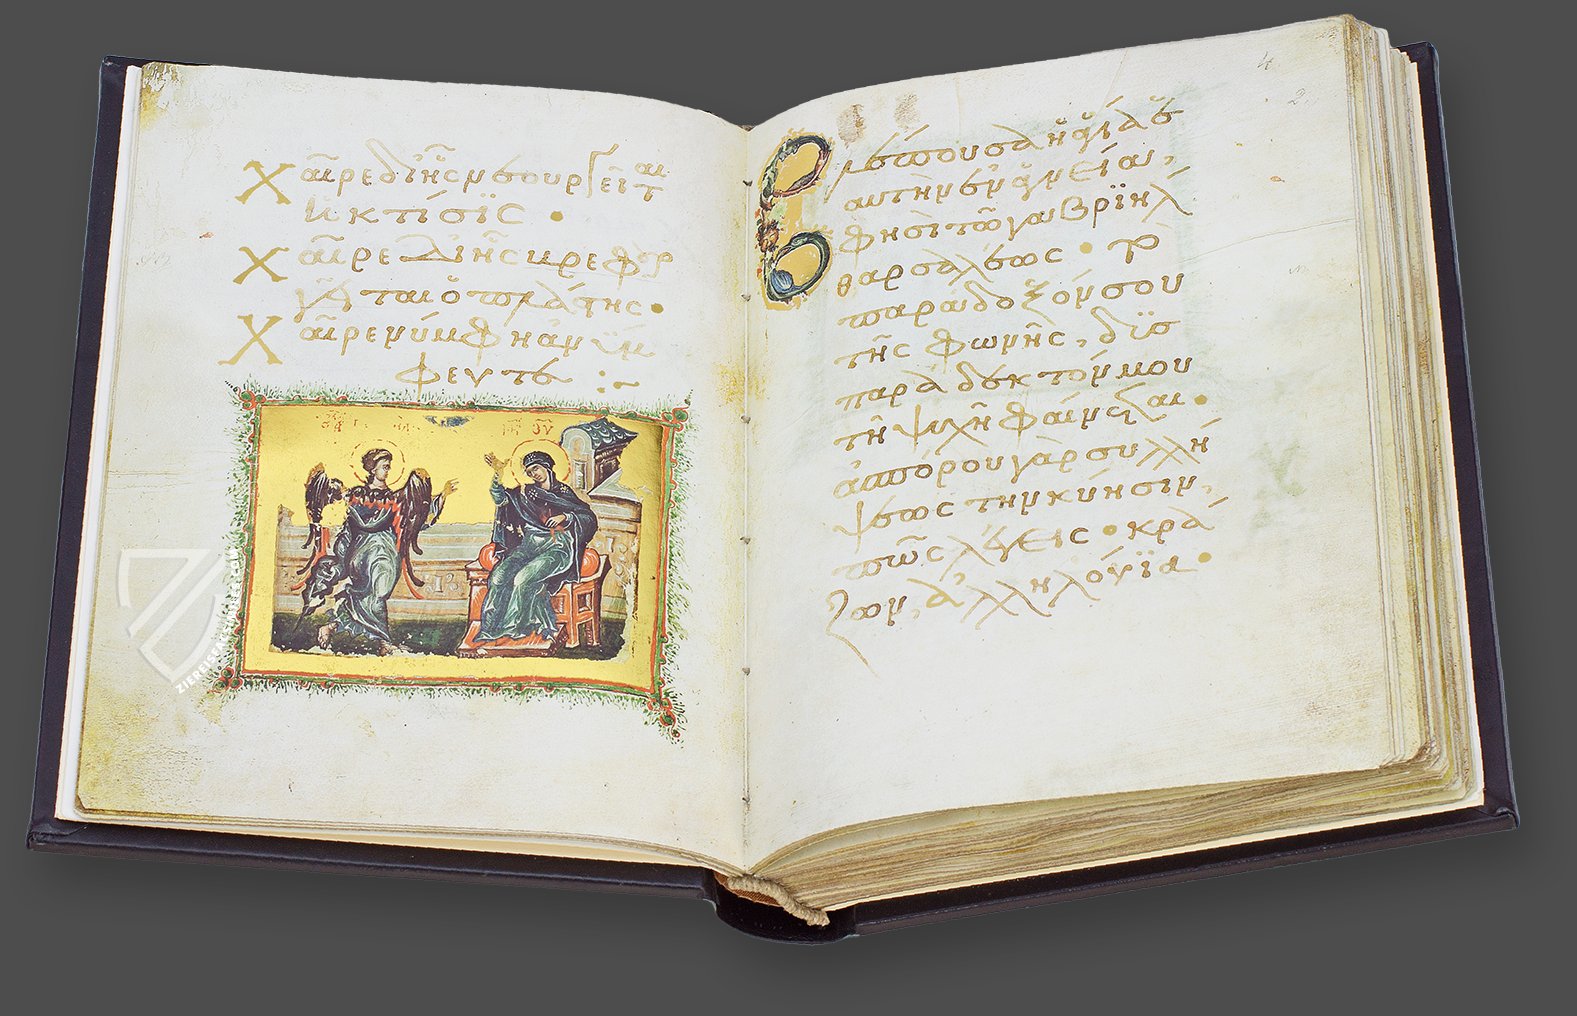 Χαῖρε δι' ἧς νεουργεῖται
ἡ κτίσϊς ·
Χαῖρε δι' ἧς βρεφουρ
γεῖται ὁ πλάστης ·
Χαῖρε νύμφη ἀνύμ
φευτε :~
ΜΡ ΘΥ
ZIEREIS FACSIMILES.COM
4
Βλέπουσα ἡ ἁγία ἑ
αυτὴν ἐν ἁγνείαι,
φησὶ τῶ γαβριὴλ
θαρσαλέως · τὸ
παράδοξόν σου
τῆς φωνῆς, δϋσ
παράδεκτόν μου
τῆ ψυχῆ φαίνεται ·
ἀσπόρου γὰρ συλλή
ψεως τὴν κύησιν,
πῶς λέγεις · κρά
ζων, ἀλληλούϊα ·